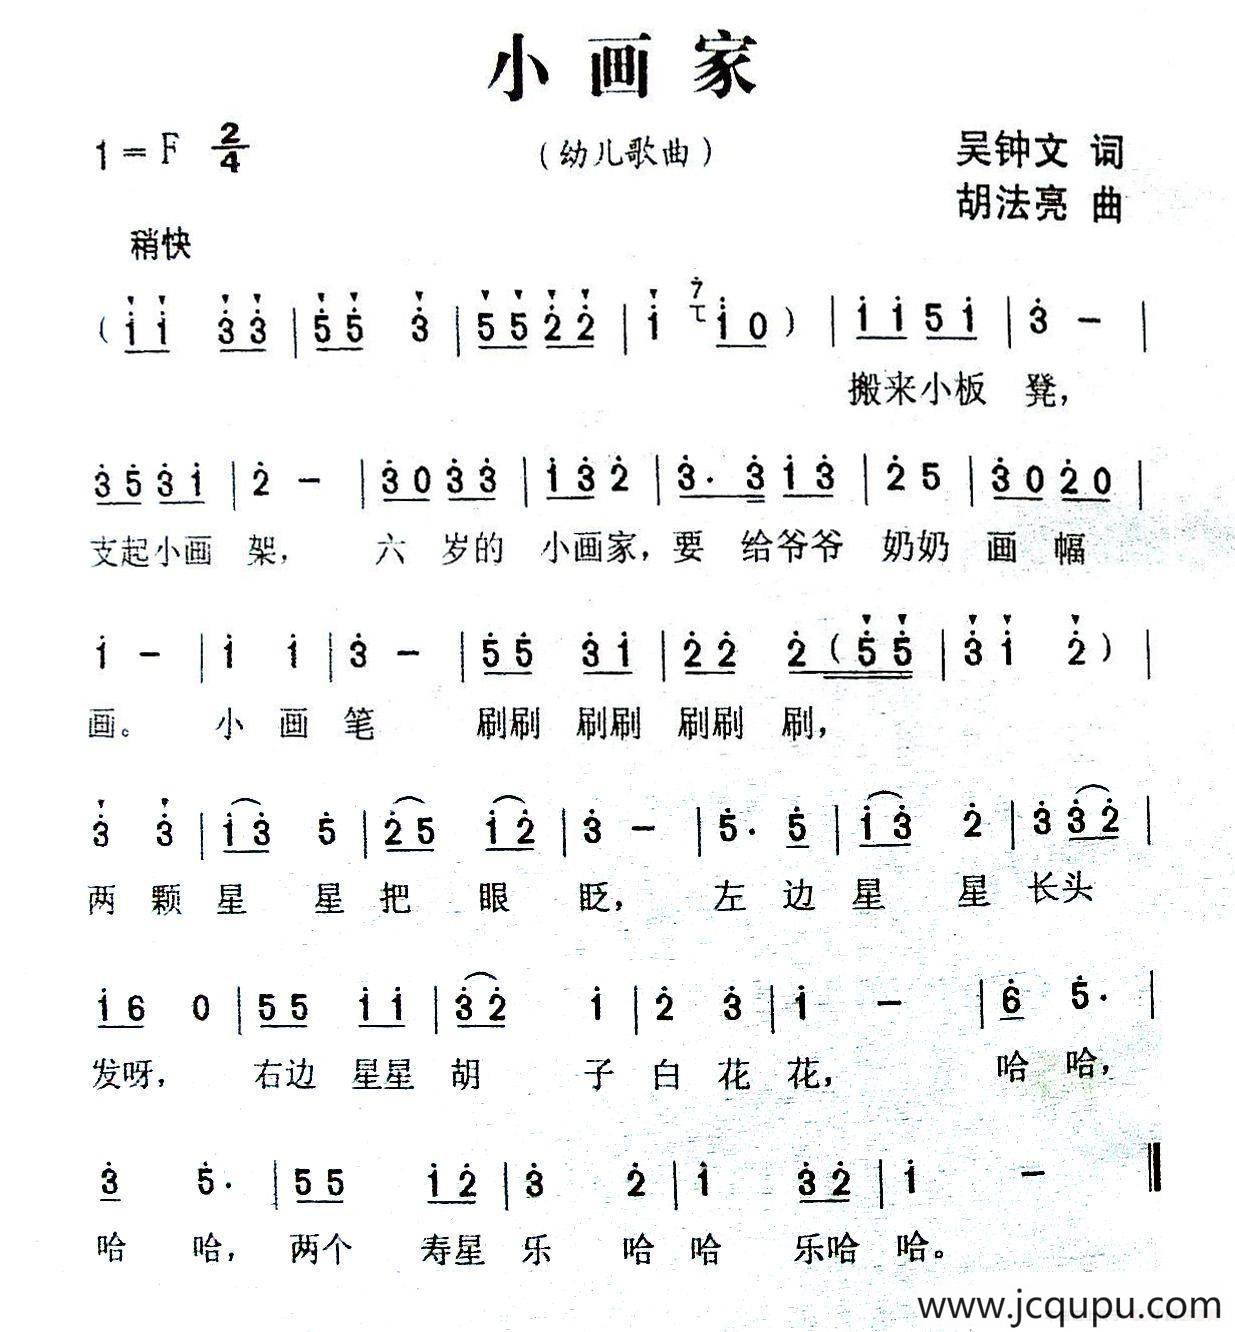 小画家
1=F 2/4
(幼儿歌曲)
吴钟文 词
胡法亮 曲
稍快
(i̇ i̇ 3̇ 3̇ | 5̇ 5̇ 3̇ | 5̇ 5̇ 2̇ 2̇ | i̇ 7̇ i̇ 0) | i̇ i̇ 5 i̇ | 3̇ － |
搬来小板 凳，
3̇ 5̇ 3̇ i̇ | 2̇ － | 3̇ 0 3̇ 3̇ | i̇ 3̇ 2̇ | 3̇· 3̇ i̇ 3̇ | 2̇ 5 | 3̇ 0 2̇ 0 |
支起小画 架， 六 岁的 小画家，要 给爷爷 奶奶 画 幅
i̇ － | i̇ i̇ | 3̇ － | 5̇ 5̇ 3̇ i̇ | 2̇ 2̇ 2̇ (5̇ 5̇ | 3̇ i̇ 2̇) |
画。 小 画 笔 刷刷 刷刷 刷刷 刷，
3̇ 3̇ | i̇ 3̇ 5̇ | 2̇ 5 i̇ 2̇ | 3̇ － | 5̇· 5̇ | i̇ 3̇ 2̇ | 3̇ 3̇ 2̇ |
两 颗 星 星 把 眼 眨， 左 边 星 星 长头
i̇ 6 0 | 5 5 i̇ i̇ | 3̇ 2̇ i̇ | 2̇ 3̇ | i̇ － | 6̇ 5̇· |
发呀， 右边 星星 胡 子 白 花 花， 哈 哈，
3̇ 5̇· | 5 5 i̇ 2̇ | 3̇ 2̇ | i̇ 3̇ 2̇ | i̇ － ‖
哈 哈， 两个 寿星 乐 哈 哈 乐哈 哈。
www.jcqupu.com